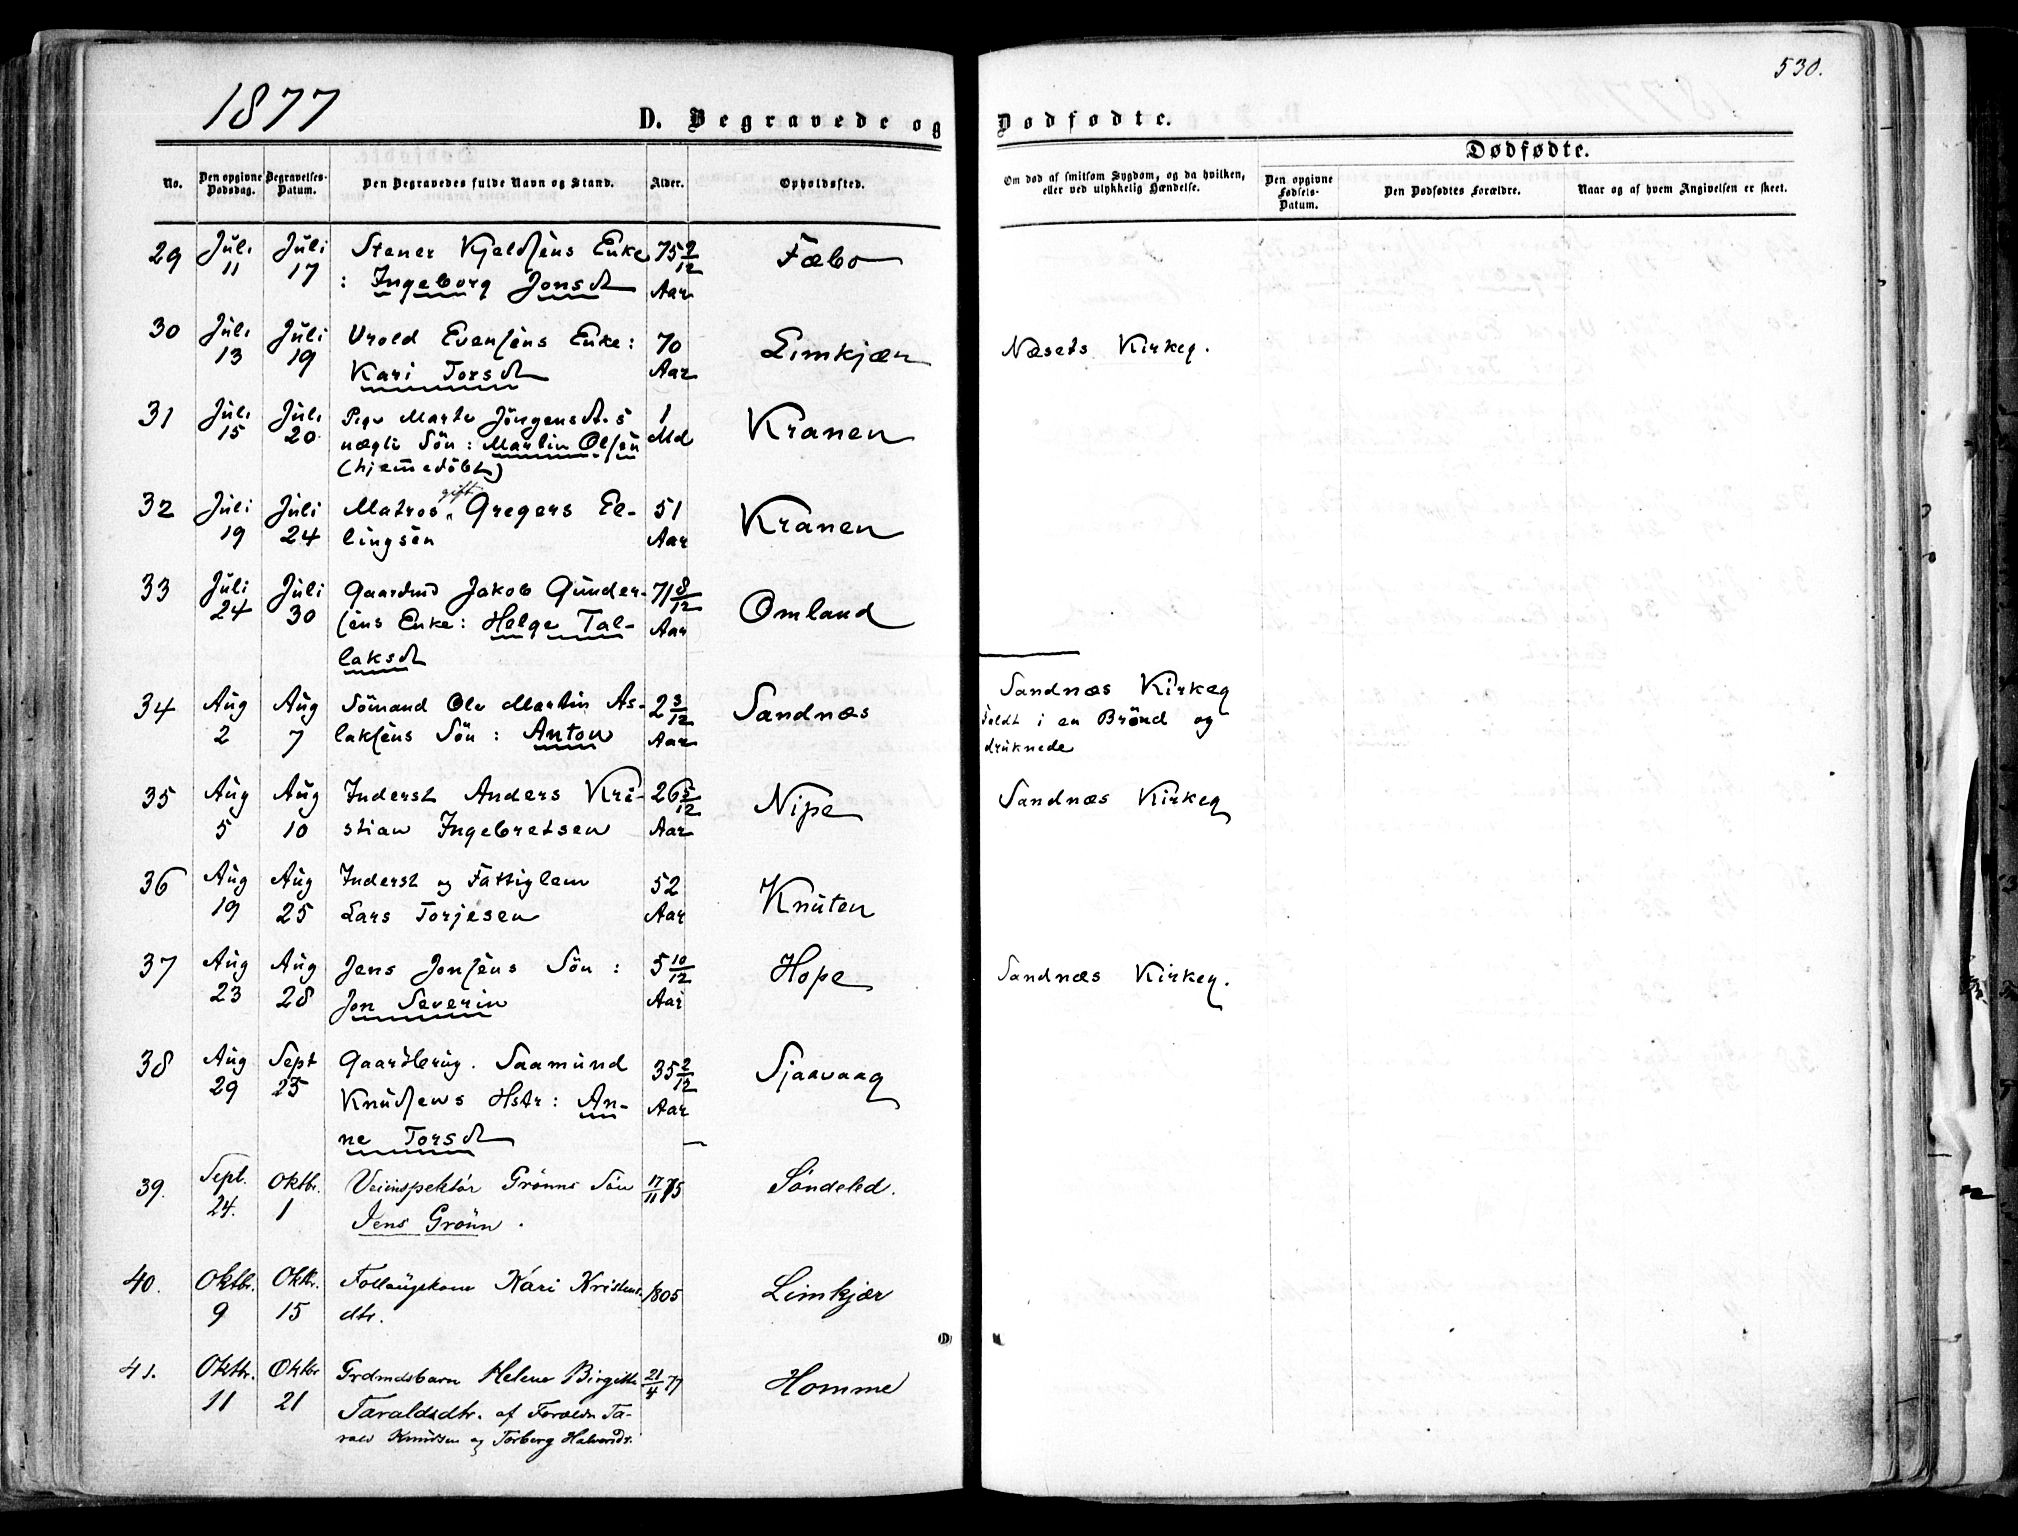 530.
1877
D. Begravede og Dødfødte.
Dødfødte.
No.
Den opgivne Dødsdag.
Begravelses-Datum.
Den Begravedes fulde Navn og Stand.
Alder.
Opholdssted.
Om død af smitsom Sygdom, og da hvilken, eller ved ulykkelig Hændelse.
Den opgivne Fødsels-Datum.
Den Dødfødtes Forældre.
Naar og af hvem Angivelsen er skeet.
29 Juli Juli Stener Kjeldsens Enke 75 2/12 Fæbo
11 17 : Ingeborg Jonsdt Aar
30 Juli Juli Urold Evensens Enke: 70 Limkjær Næsets Kirkeg.
13 19 Kari Torsdt Aar
31 Juli Juli Pige Marte Jörgensdt.s 1 Kranen
15 20 uægte Sön: Martin Olsen Md
(hjemmedöbt)
32 Juli Juli Matros gift Gregers El- 51 Kranen
19 24 lingsen Aar
33 Juli Juli Gaardmd Jakob Gunder- 71 8/12 Omland
24 30 sens Enke: Helge Tal- Aar
laksdt
34 Aug Aug Sömand Ole Martin As- 2 3/12 Sandnæs Sandnæs Kirkeg
2 7 laksens Sön: Anton Aar Faldt i en Brönd og
druknede
35 Aug Aug Inderst Anders Kri- 26 5/12 Nipe Sandnæs Kirkeg
5 10 stian Ingebretsen Aar
36 Aug Aug Inderst og Fattiglem 52 Knuten
19 25 Lars Torjesen Aar
37 Aug Aug Jens Jonsens Sön: 5 10/12 Hope Sandnæs Kirkeg.
23 28 Jon Severin Aar
38 Aug Sept Gaardbrug. Saamund 35 2/12 Sjaavaag
29 Knudsens Hstr: An- Aar
ne Torsdt
39. Sept. Oktbr. Veiinspektör Grönns Sön 17/11 75 Söndeled.
24. 1 Jens Grönn.
40. Oktbr. Oktbr. Kari Kristens- 1805 Limkjær
9 15 dtr.
41. Oktbr. Oktbr Grdmdsbarn Helene Birgitte 21/4 77 Homme
11 21 Taraldsdtr. af Foreldre Ta-
rald Knudsen og Torberg Halvorsdt.